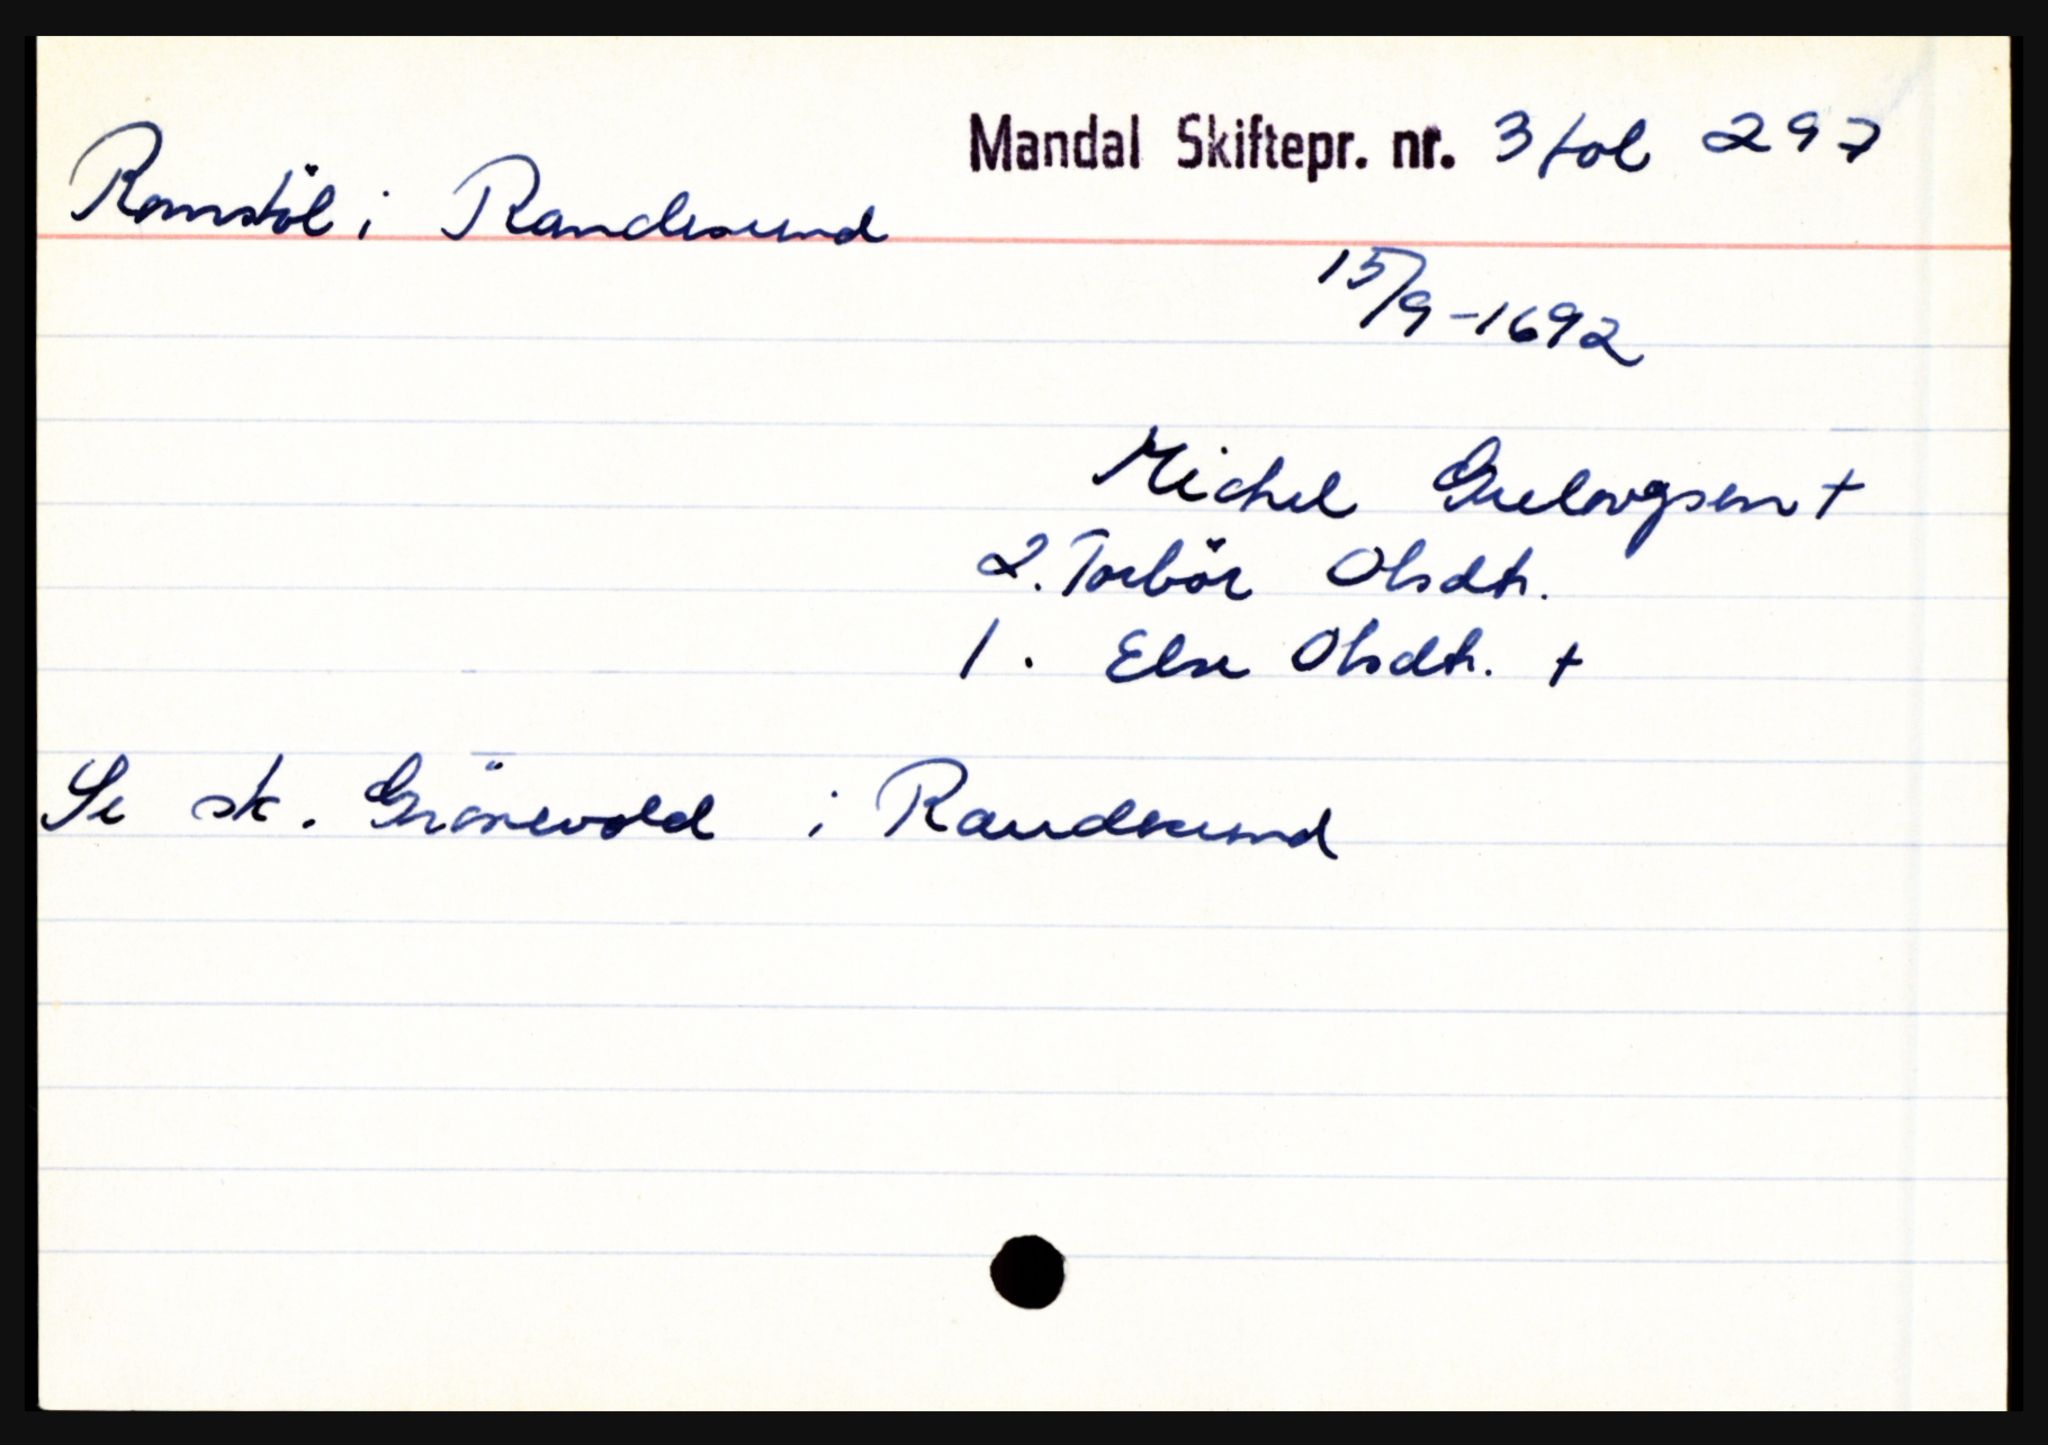 Mandal Skiftepr. nr. 3 fol 297
Romstöl i Randesund
15/9-1692
Michel Guelovgsen +
2. Torbör Olsdtr.
1. Else Olsdtr. +
Se sk. Grönevold i Randesund